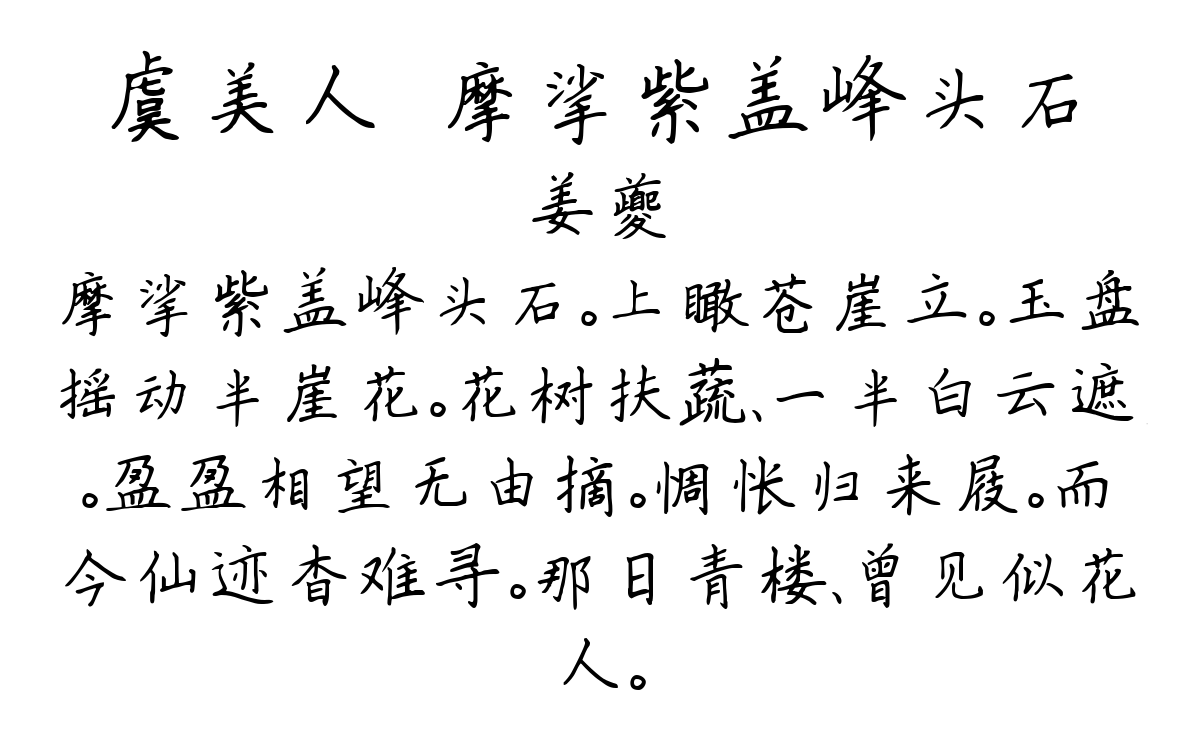 虞美人 摩挲紫盖峰头石
姜夔
摩挲紫盖峰头石。上瞰苍崖立。玉盘
摇动半崖花。花树扶蔬、一半白云遮
。盈盈相望无由摘。惆怅归来屐。而
今仙迹杳难寻。那日青楼、曾见似花
人。